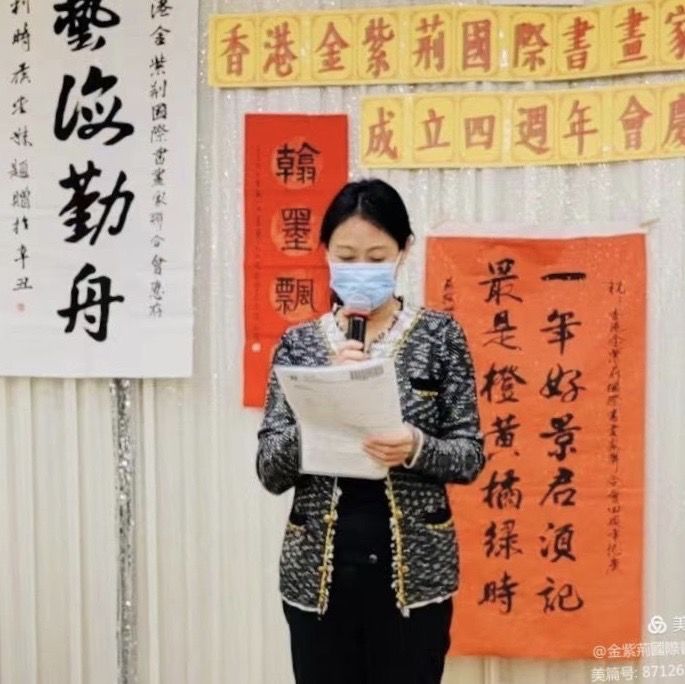 香港金紫荊國際書畫家
成立四週年會慶
藝海勤舟
港金紫荊國際書畫家聯合會惠存
翰墨飄
祝:香港金紫荊國際書畫家聯合會四週年紀慶
一年好景君須記
最是橙黃橘綠時
美
@金紫荊國際書
美篇号: 87126